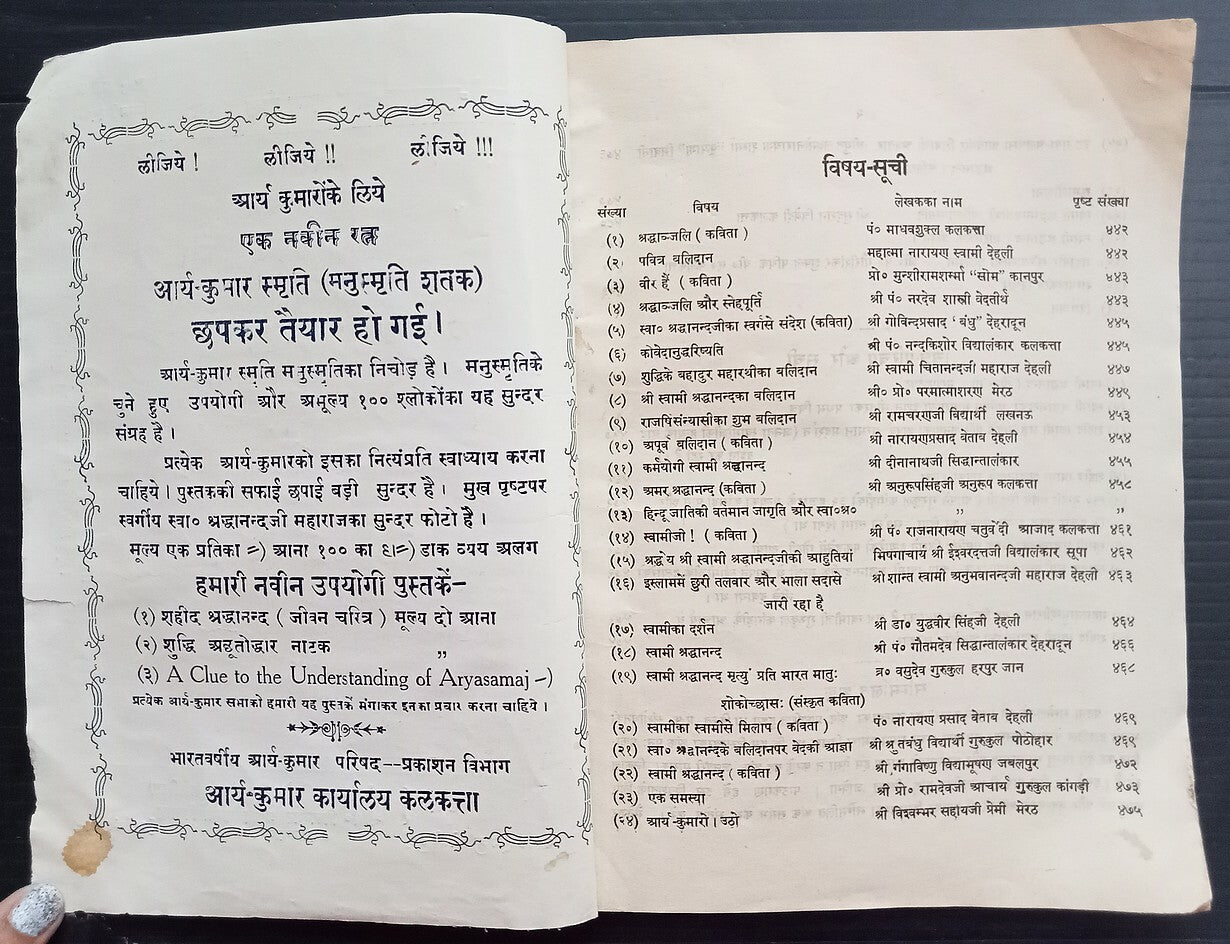 लीजिये ! लीजिये !! लीजिये !!!
आर्य कुमारोंके लिये
एक नवीन रत्न
आर्य-कुमार स्मृति (मनुस्मृति शतक)
छपकर तैयार हो गई।
आर्य-कुमार स्मृति मनुस्मृतिका निचोड़ है। मनुस्मृतिके
चुने हुए उपयोगी और अमूल्य १०० श्लोकोंका यह सुन्दर
संग्रह है।
प्रत्येक आर्य-कुमारको इसका नित्यंप्रति स्वाध्याय करना
चाहिये। पुस्तककी सफाई छपाई बड़ी सुन्दर है। मुख पृष्टपर
स्वर्गीय स्वा० श्रद्धानन्दजी महाराजका सुन्दर फोटो है।
मूल्य एक प्रतिका =) आना १०० का ९।=) डाक व्यय अलग
हमारी नवीन उपयोगी पुस्तकें–
(१) शहीद श्रद्धानन्द ( जीवन चरित्र ) मूल्य दो आना
(२) शुद्धि अछूतोद्धार नाटक ,,
(३) A Clue to the Understanding of Aryasamaj -)
प्रत्येक आर्य-कुमार सभाको हमारी यह पुस्तकें मंगाकर इनका प्रचार करना चाहिये।
भारतवर्षीय आर्य-कुमार परिषद--प्रकाशन विभाग
आर्य-कुमार कार्यालय कलकत्ता
विषय-सूची
संख्या विषय लेखकका नाम पृष्ट संख्या
(१) श्रद्धाञ्जलि ( कविता ) पं० माधवशुक्ल कलकत्ता ४४२
(२) पवित्र बलिदान महात्मा नारायण स्वामी देहली ४४२
(३) वीर हैं ( कविता ) प्रो० मुन्शीरामशर्म्मा “सोम” कानपुर ४४३
(४) श्रद्धाञ्जलि और स्नेहपूर्ति श्री पं० नरदेव शास्त्री वेदतीर्थ ४४३
(५) स्वा० श्रद्धानन्दजीका स्वर्गसे संदेश (कविता) श्री गोविन्दप्रसाद ‘बंधु’ देहरादून ४४५
(६) कोवेदानुद्धरिष्यति श्री पं० नन्दकिशोर विद्यालंकार कलकत्ता ४४५
(७) शुद्धिके बहादुर महारथीका बलिदान श्री स्वामी चितानन्दजी महाराज देहली ४४७
(८) श्री स्वामी श्रद्धानन्दका बलिदान श्री० प्रो० परमात्माशरण मेरठ ४४९
(९) राजषिसंन्यासीका शुभ बलिदान श्री रामचरणजी विद्यार्थी लखनऊ ४५३
(१०) अपूर्व बलिदान ( कविता ) श्री नारायणप्रसाद बेताव देहली ४५४
(११) कर्मयोगी स्वामी श्रद्धानन्द श्री दीनानाथजी सिद्धान्तालंकार ४५५
(१२) अमर श्रद्धानन्द (कविता ) श्री अनुरूपसिंहजी अनुरूप कलकत्ता ४५८
(१३) हिन्दू जातिकी वर्तमान जागृति और स्वा०श्र० ,, ,,
(१४) स्वामीजी ! ( कविता ) श्री पं० राजनारायण चतुर्वेदी आजाद कलकत्ता ४६१
(१५) श्रद्धेय श्री स्वामी श्रद्धानन्दजीकी आहुतियां भिषगाचार्य श्री ईश्वरदत्तजी विद्यालंकार सूपा ४६२
(१६) इस्लाममें छुरी तलवार और भाला सदासे श्री शान्त स्वामी अनुभवानन्दजी महाराज देहली ४६३
जारी रहा है
(१७) स्वामीका दर्शन श्री डा० युद्धवीर सिंहजी देहली ४६४
(१८) स्वामी श्रद्धानन्द श्री पं० गौतमदेव सिद्धान्तालंकार देहरादून ४६६
(१९) स्वामी श्रद्धानन्द मृत्युं प्रति भारत मातुः ब्र० वसुदेव गुरुकुल हरपुर जान ४६८
शोकोच्छासः (संस्कृत कविता)
(२०) स्वामीका स्वामीसे मिलाप ( कविता ) पं० नारायण प्रसाद बेताव देहली ४६९
(२१) स्वा० श्रद्धानन्दके बलिदानपर वेदकी आज्ञा श्री श्रुतबंधु विद्यार्थी गुरुकुल पोठोहार ४६९
(२२) स्वामी श्रद्धानन्द ( कविता ) श्री गंगाविष्णु विद्याभूषण जबलपुर ४७२
(२३) एक समस्या श्री प्रो० रामदेवजी आचार्य गुरुकुल कांगड़ी ४७३
(२४) आर्य-कुमारो। उठो श्री विश्वम्भर सहायजी प्रेमी मेरठ ४७५